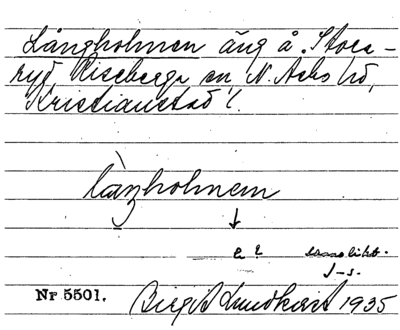 Långholmen äng å Stora-
ryd Riseberga sn N. Åsbo hd,
Kristianstad l.
làŋholmεn
↓
e ?
J-s.
Nr 5501. Birgit Lundkvist 1935